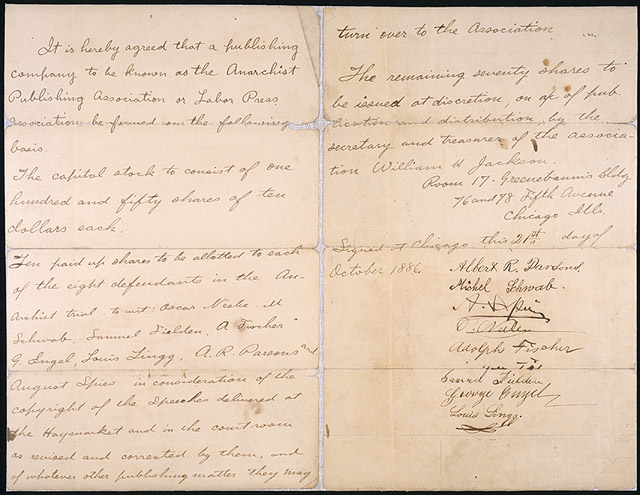 It is hereby agreed that a publishing
company to be known as the Anarchist
Publishing Association or Labor Press
Association be formed on the following
basis.
The capital stock to consist of one
hundred and fifty shares of ten
dollars each.
Ten paid up shares to be allotted to each
of the eight defendants in the An-
archist trial to wit: Oscar Neebe. M
Schwab, Samuel Fielden, A Fischer
G. Engel, Louis Lingg, A. R. Parsons and
August Spies in consideration of the
copyright of the Speeches delivered at
the Haymarket and in the court room
as revised and corrected by them, and
of whatever other publishing matter they may
turn over to the Association
The remaining seventy shares to
be issued at discretion, on of pub
lication and distribution by the
secretary and treasurer of the associa-
tion William H Jackson.
Room 17. Greenebaum's Bldg
76 and 78 Fifth Avenue
Chicago Ills.
Signed at Chicago this 21st day of
October 1886.
Albert R. Parsons
Michel Schwab.
A. Spies
O. Neebe
Adolph Fischer
Samuel Fielden
George Engel
Louis Lingg.